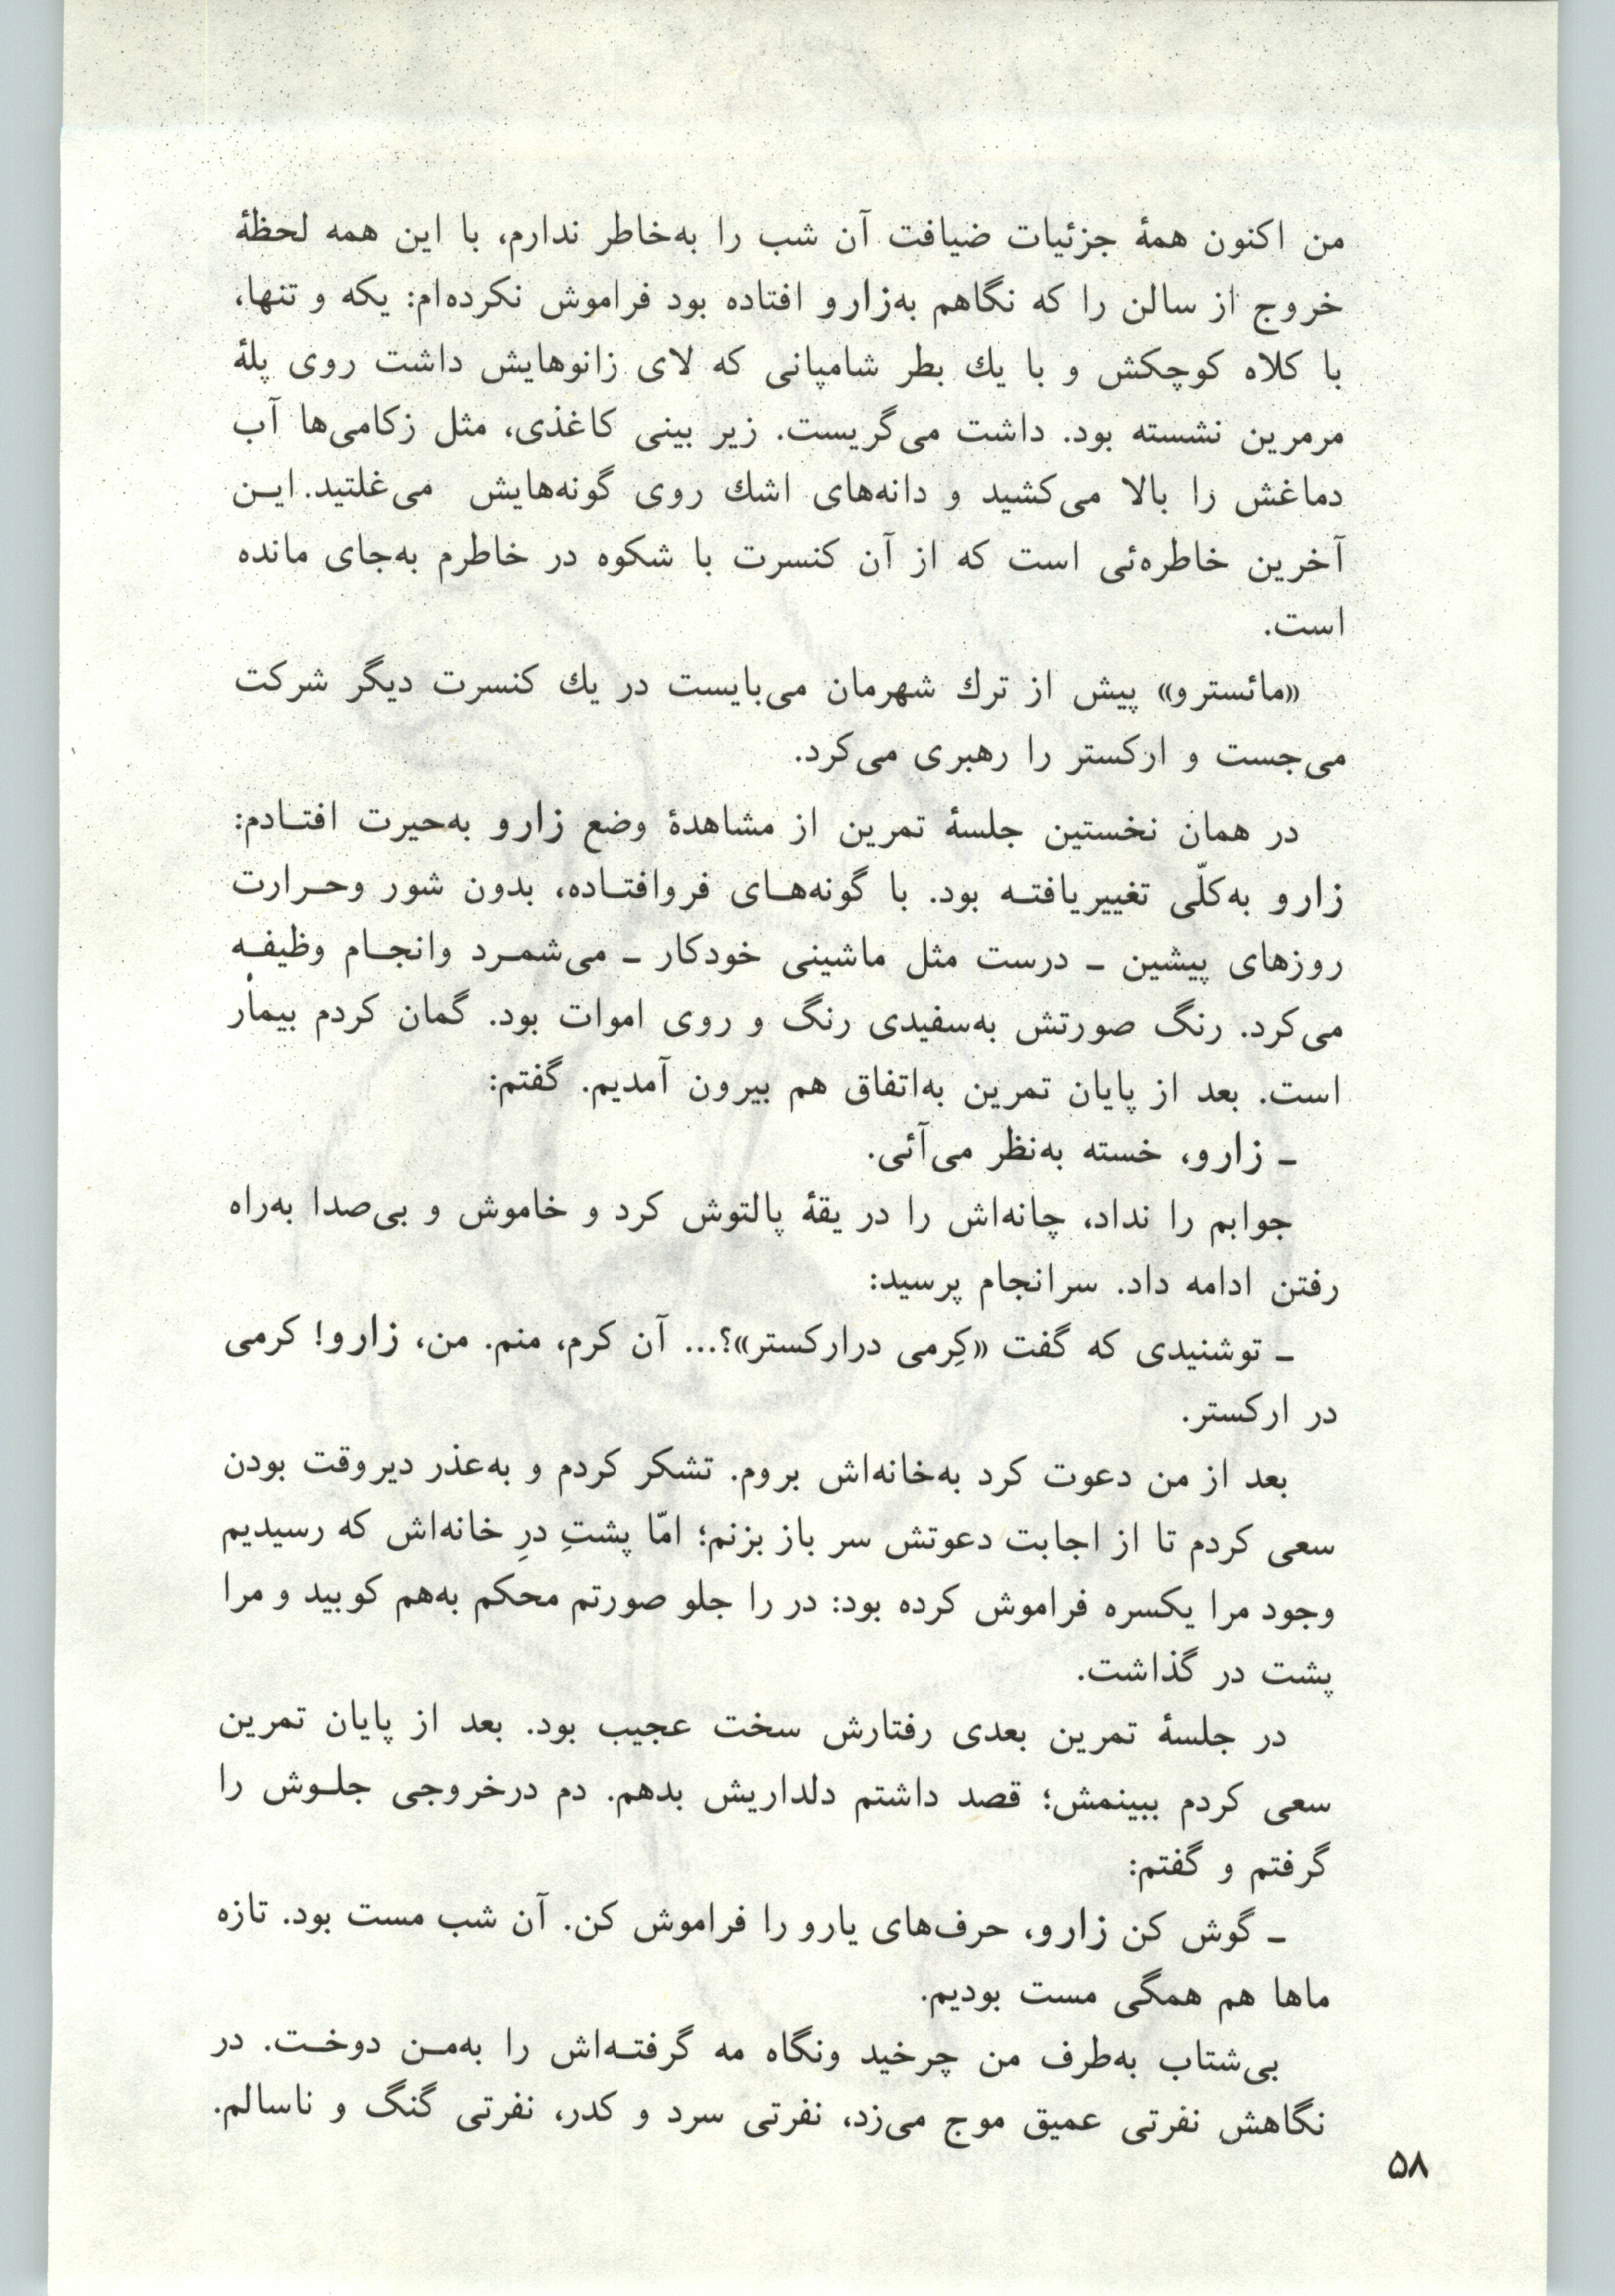 من اکنون همهٔ جزئیات ضیافت آن شب را به‌خاطر ندارم، با این همه لحظهٔ
خروج از سالن را که نگاهم به‌زارو افتاده بود فراموش نکرده‌ام: یکه و تنها،
با کلاه کوچکش و با یك بطر شامپانی که لای زانوهایش داشت روی پلهٔ
مرمرین نشسته بود. داشت می‌گریست. زیر بینی کاغذی، مثل زکامی‌ها آب
دماغش را بالا می‌کشید و دانه‌های اشك روی گونه‌هایش می‌غلتید. ایـن
آخرین خاطره‌ئی است که از آن کنسرت با شکوه در خاطرم به‌جای مانده
است.
«مائسترو» پیش از ترك شهرمان می‌بایست در یك کنسرت دیگر شرکت
می‌جست و ارکستر را رهبری می‌کرد.
در همان نخستین جلسهٔ تمرین از مشاهدهٔ وضع زارو به‌حیرت افتـادم:
زارو به‌کلّی تغییریافتـه بود. با گونه‌هـای فروافتـاده، بدون شور وحـرارت
روزهای پیشین ـ درست مثل ماشینی خودکار ـ می‌شمـرد وانجـام وظیفـه
می‌کرد. رنگ صورتش به‌سفیدی رنگ و روی اموات بود. گمان کردم بیمار
است. بعد از پایان تمرین به‌اتفاق هم بیرون آمدیم. گفتم:
ـ زارو، خسته به‌نظر می‌آئی.
جوابم را نداد، چانه‌اش را در یقهٔ پالتوش کرد و خاموش و بی‌صدا به‌راه
رفتن ادامه داد. سرانجام پرسید:
ـ توشنیدی که گفت «کِرمی درارکستر»؟... آن کرم، منم. من، زارو! کرمی
در ارکستر.
بعد از من دعوت کرد به‌خانه‌اش بروم. تشکر کردم و به‌عذر دیروقت بودن
سعی کردم تا از اجابت دعوتش سر باز بزنم؛ امّا پشتِ درِ خانه‌اش که رسیدیم
وجود مرا یکسره فراموش کرده بود: در را جلو صورتم محکم به‌هم کوبید و مرا
پشت در گذاشت.
در جلسهٔ تمرین بعدی رفتارش سخت عجیب بود. بعد از پایان تمرین
سعی کردم ببینمش؛ قصد داشتم دلداریش بدهم. دم درخروجی جلـوش را
گرفتم و گفتم:
ـ گوش کن زارو، حرف‌های یارو را فراموش کن. آن شب مست بود. تازه
ماها هم همگی مست بودیم.
بی‌شتاب به‌طرف من چرخید ونگاه مه گرفتـه‌اش را به‌مـن دوخـت. در
نگاهش نفرتی عمیق موج می‌زد، نفرتی سرد و کدر، نفرتی گنگ و ناسالم.
۵۸